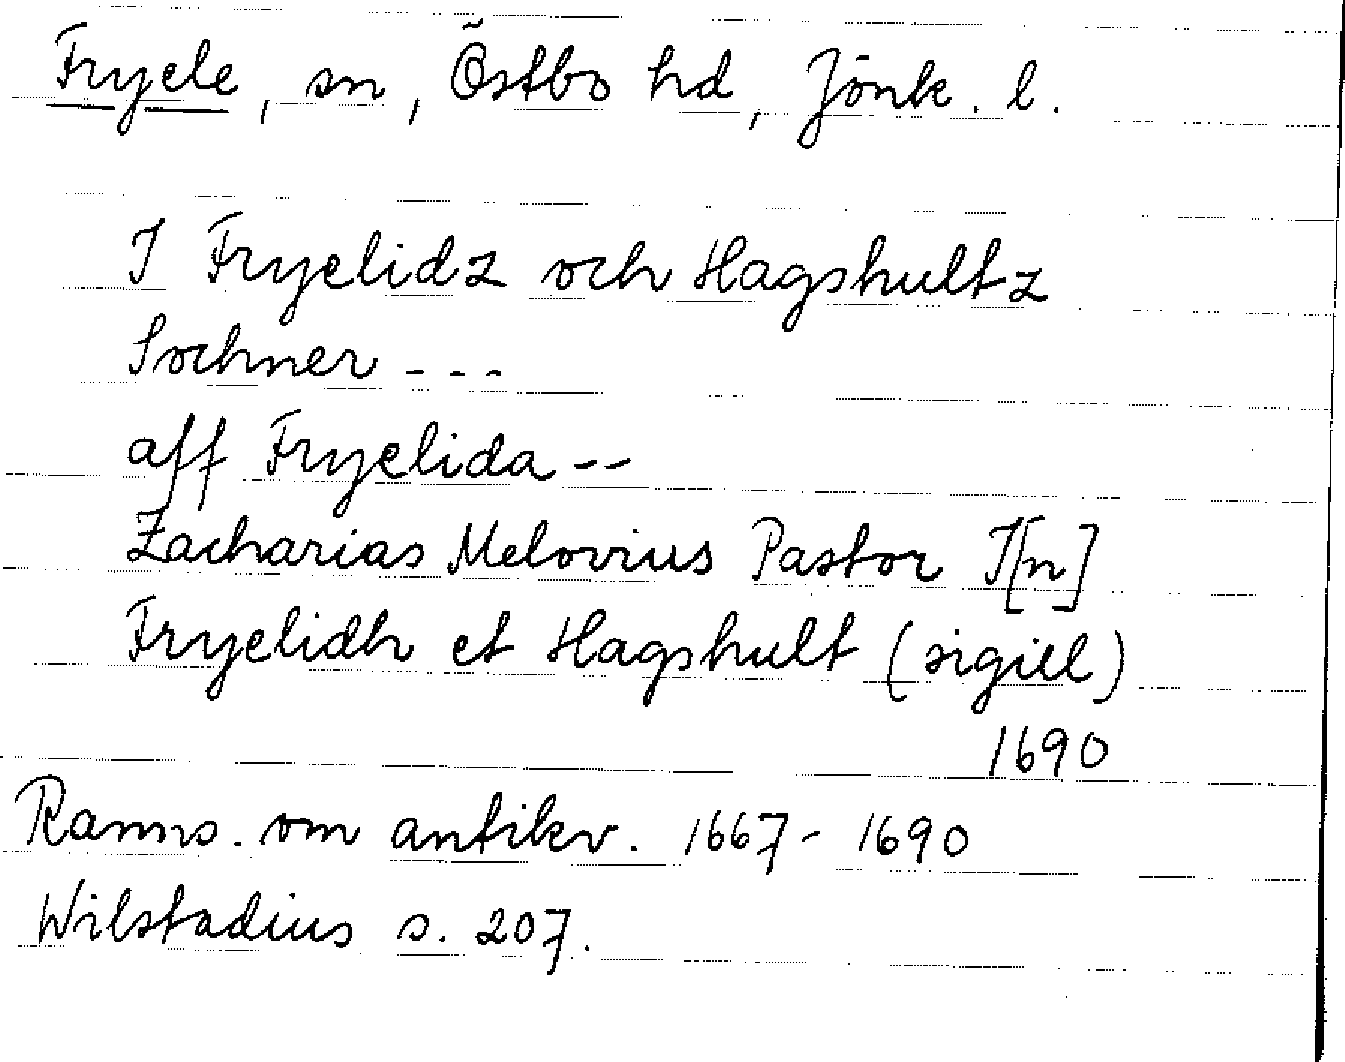 Fryele, sn, Östbo hd, Jönk. l.
I Fryelidz och Hagshultz
Sochner ---
aff Fryelida --
Zacharias Melovius Pastor I[n]
Fryelidh et Hagshult (sigill)
1690
Ranns. om antikv. 1667-1690
Wilstadius s. 207.